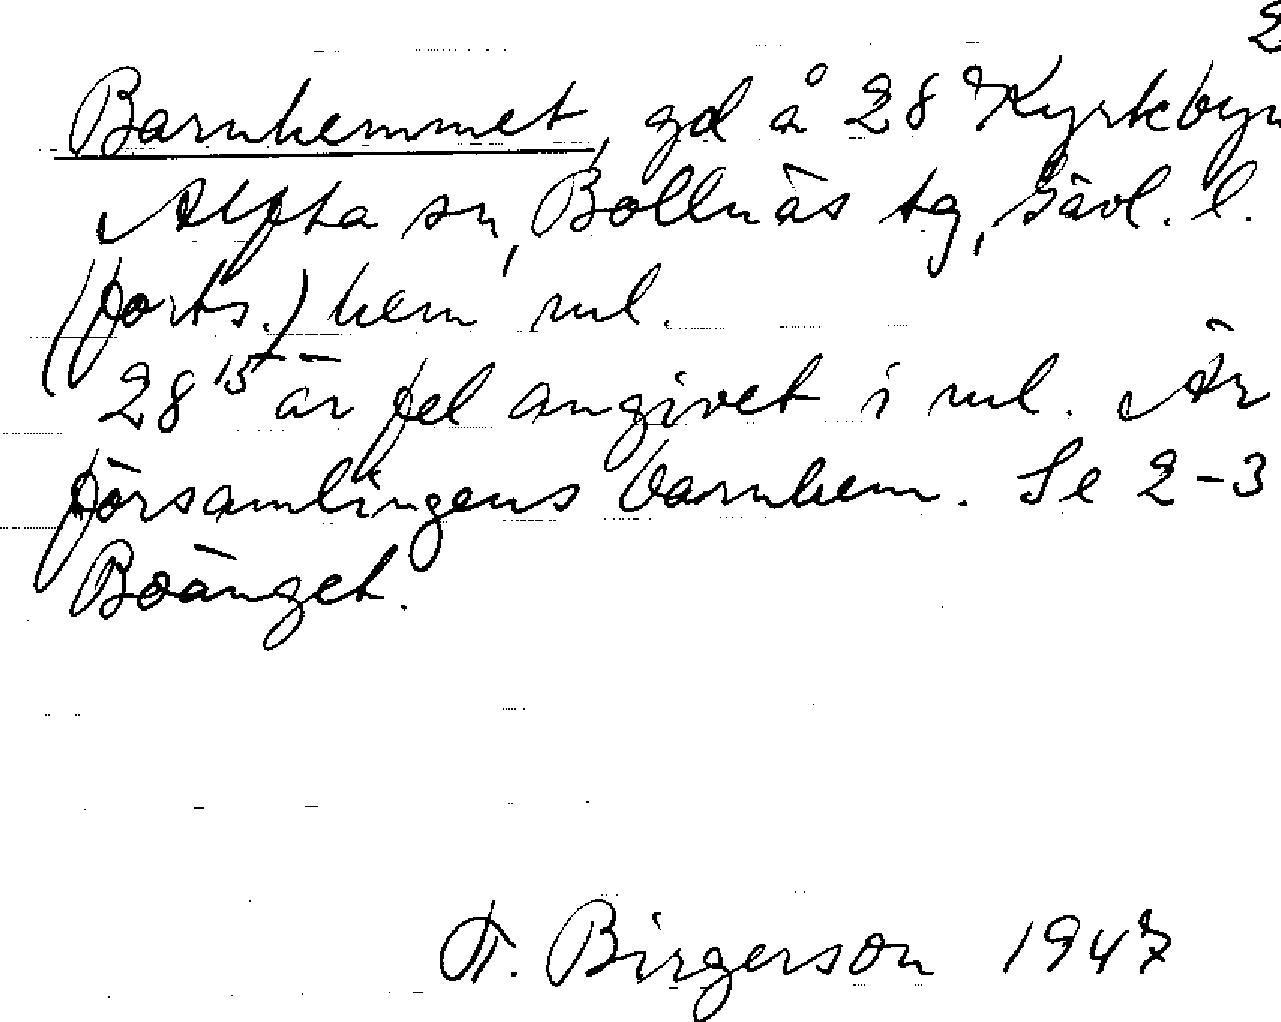 2
Barnhemmet, gd å 28 Kyrkbyn
Alfta sn, Bollnäs tg, Gävl. l.
(forts.) hem rul.
28¹⁵ är fel angivet i rul. Är
församlingens barnhem. Se 2-3
Boänget.
Birgerson 1947